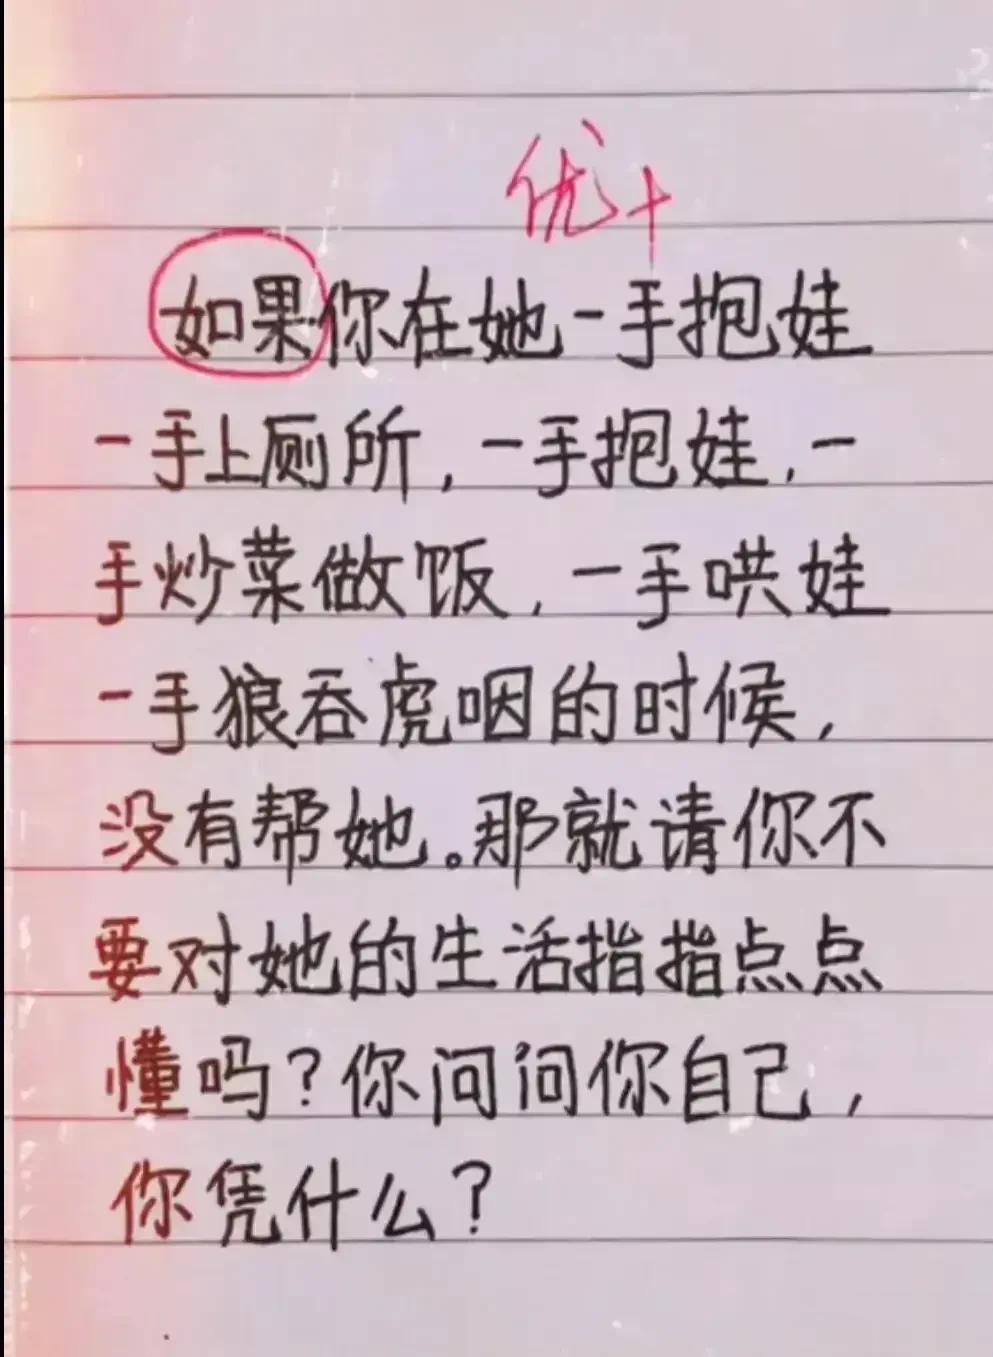 优+
如果你在她一手抱娃
一手上厕所,一手抱娃,一
手炒菜做饭,一手哄娃
一手狼吞虎咽的时候,
没有帮她。那就请你不
要对她的生活指指点点
懂吗?你问问你自己,
你凭什么?